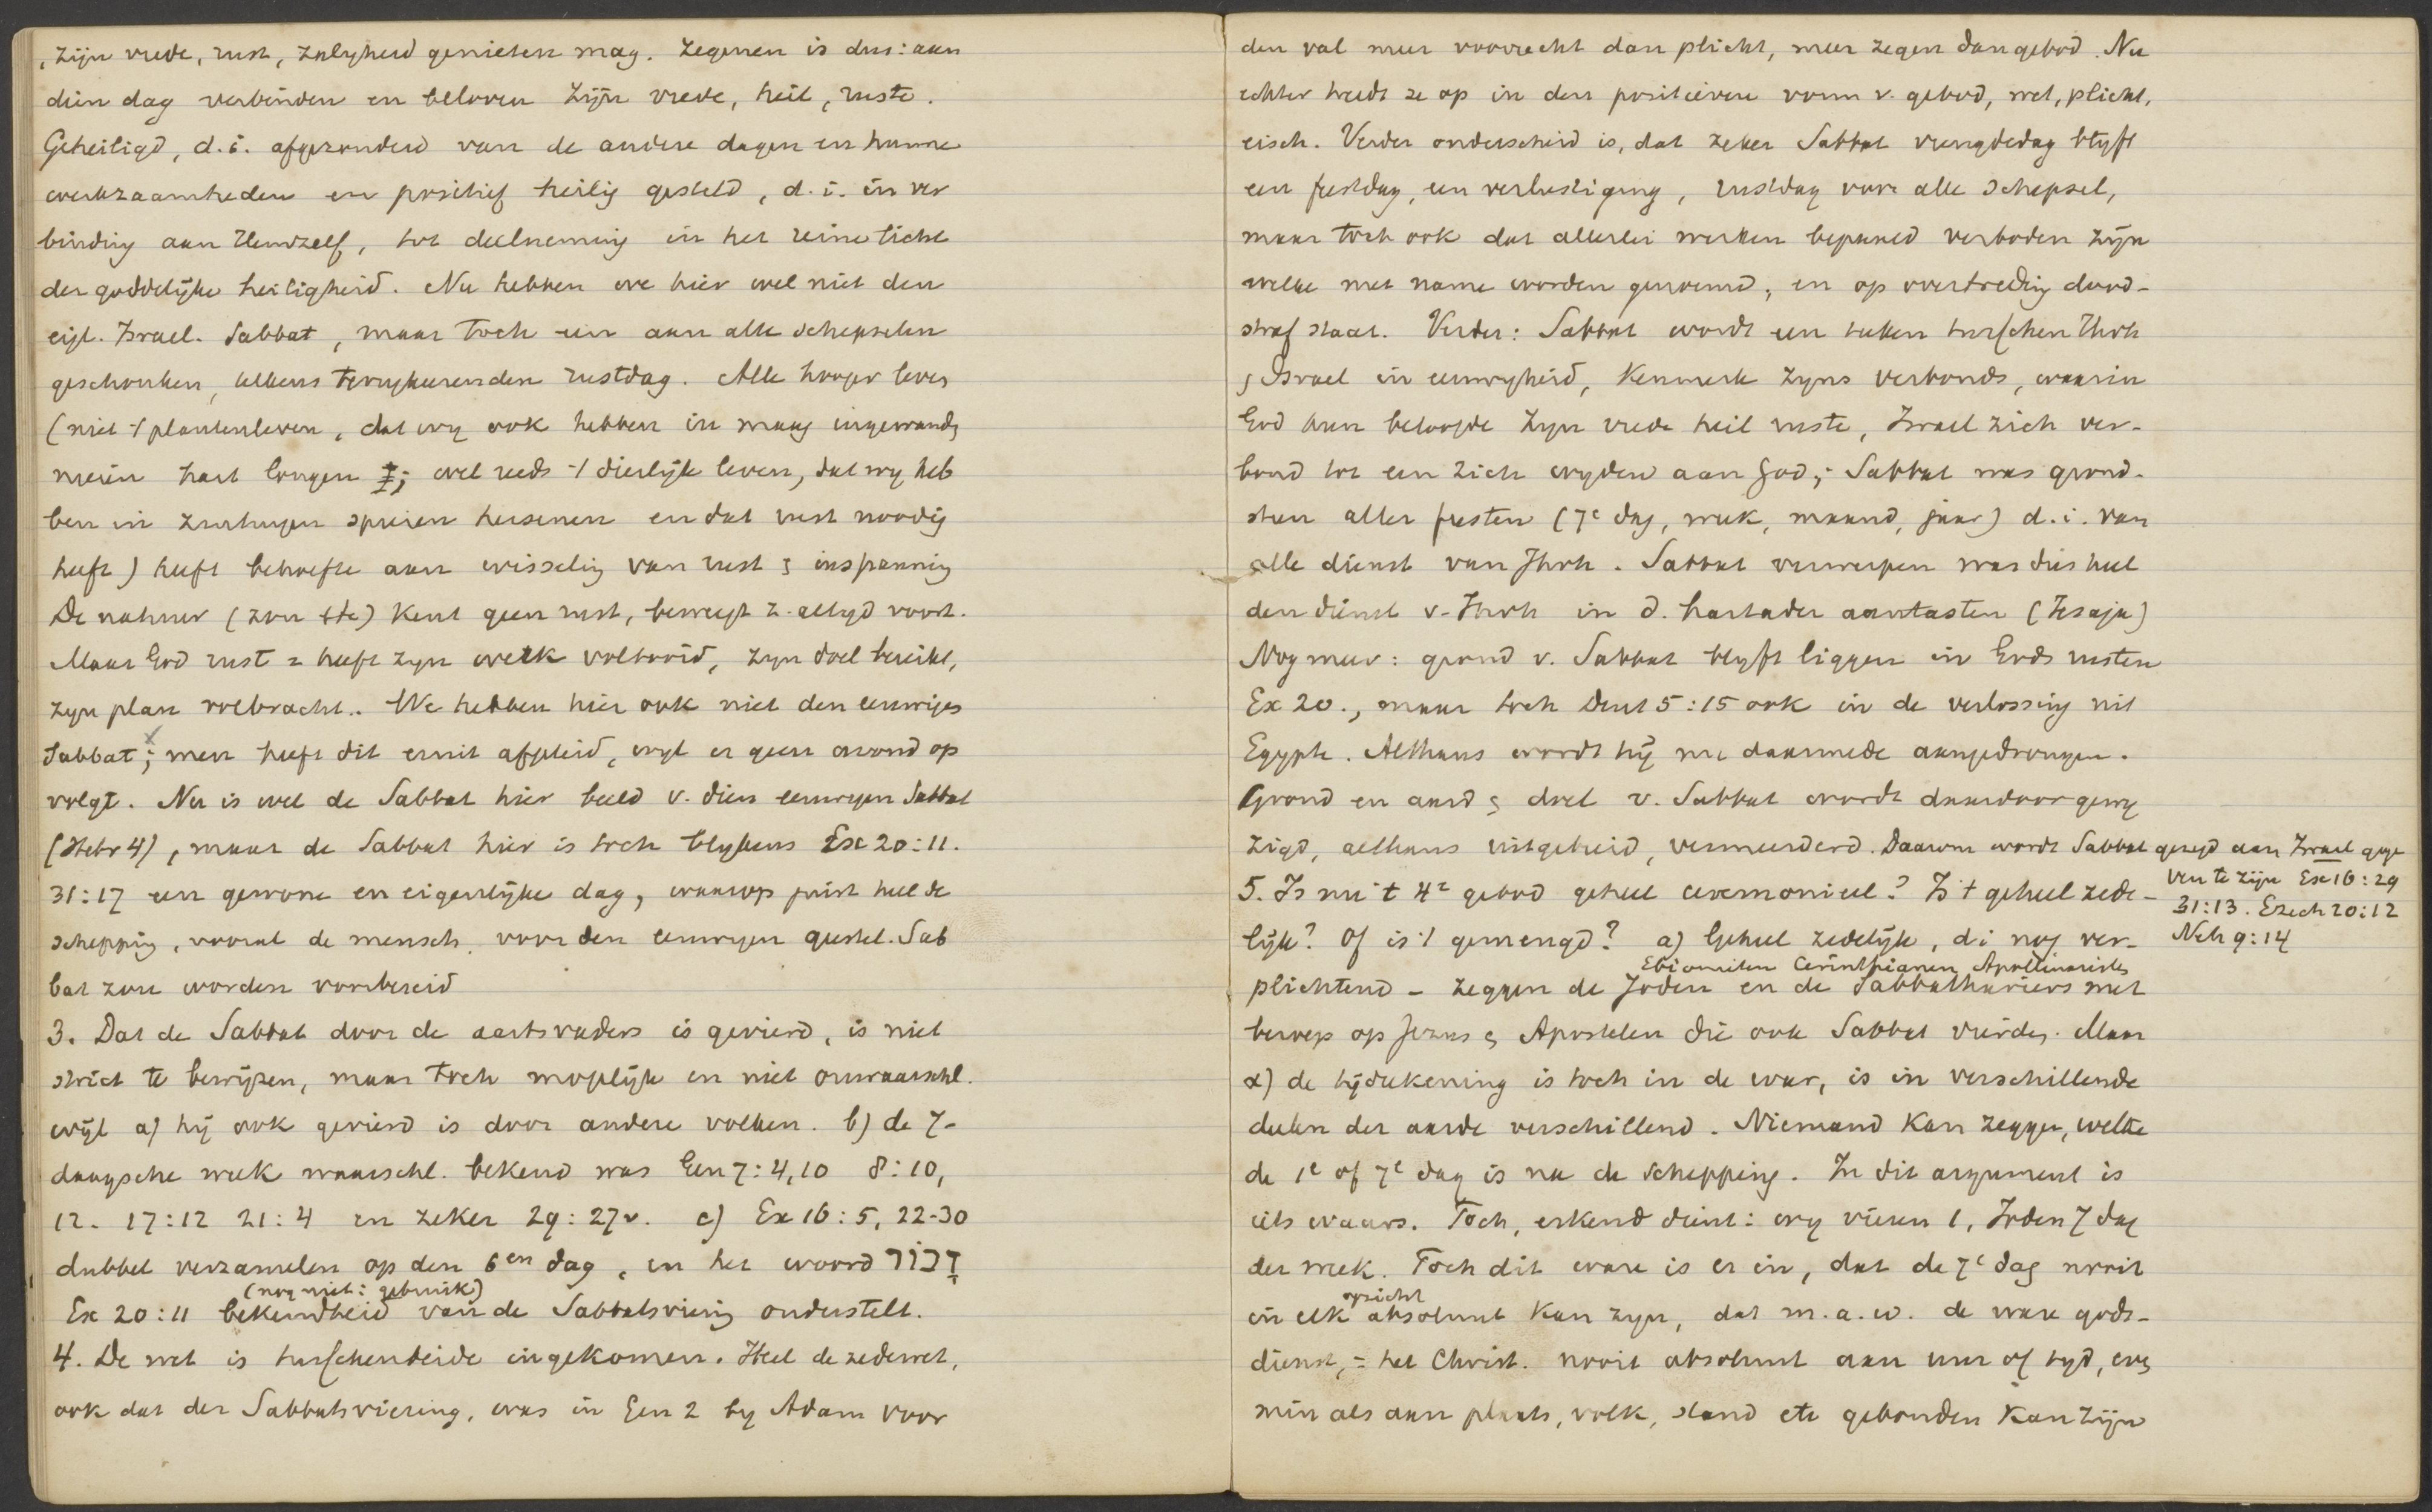 , zijn vrede, rust, zaligheid genieten mag. Zegenen is dus: aan
dien dag verbinden en beloven Zijn vrede, heil, ruste.
Geheiligd, d.i. afgezonderd van de andere dagen en hunne
werkzaamheden en positief heilig gesteld, d.i. in ver
binding aan Hemzelf, tot deelneming in het reine licht
der goddelijke heiligheid. Nu hebben we hier wel niet den
eigl. Israel. Sabbat, maar toch een aan alle schepselen
geschonken, telkens terugkeerenden rustdag. Alle hooger leven
(niet 't plantenleven, dat wy ook hebben in maag ingewand
nieren hart longen; wel reeds 't dierlijke leven, dat wy heb
ben in zenuwen spieren hersenen en dat rust noodig
heeft) heeft behoefte aan wisseling van rust & inspanning
De natuur (zon etc) kent geen rust, beweegt z. altyd voort.
Maar God rust = heeft zyn werk voltooid, zyn doel bereikt,
zyn plan volbracht.. We hebben hier ook niet den eeuwigen
Sabbat; men heeft dit eruit afgeleid, wyl er geen avond op
volgt. Nu is wel de Sabbat hier beeld v. dien eeuwigen Sabbat
(Hebr 4), maar de Sabbat hier is toch blykens Ex 20:11.
31:17 een gewone en eigenlijke dag, waarop juist heel de
schepping, vooral de mensch, voor den eeuwigen geestel. Sab
bat zou worden voorbereid
3. Dat de Sabbat door de aartsvaders is gevierd, is niet
strict te bewijzen, maar toch mogelijk en niet onwaarschl.
wijl a) hij ook gevierd is door andere volken. b) de 7-
daagsche week waarschl. bekend was Gen 7:4,10 8:10,
12. 17:12 21:4 en zeker 29:27v. c) Ex 16:5, 22-30
dubbel verzamelen op den 6en dag, en het woord זכור
(nog niet: gebruik)
Ex 20:11 bekendheid van de Sabbatsviering onderstelt.
4. De wet is tusschenbeide ingekomen. Heel de zedewet,
ook dat der Sabbatsviering, was in Gen 2 by Adam voor
den val meer voorrecht dan plicht, meer zegen dan gebod. Nu
echter treedt ze op in den positieven vorm v. gebod, wet, plicht,
eisch. Verder onderscheid is, dat zeker Sabbat vreugdedag blyft
een feestdag, een verlustiging, rustdag voor alle schepsel,
maar toch ook dat allerlei werken bepaald verboden zijn
welke met name worden genoemd, en op overtreding dood-
straf staat. Verder: Sabbat wordt een teken tusschen Jhvh
& Israel in eeuwigheid, Kenmerk zyns verbonds, waarin
God hun beloofde zyn vrede heil ruste, Israel zich ver-
bond tot een zich wyden aan God; Sabbat was grond-
steen aller feesten (7e dag, week, maand, jaar) d.i. van
alle dienst van Jhvh. Sabbat verwerpen was dus heel
den dienst v. Jhvh in d. hartader aantasten (Jesaja)
Nog meer: grond v. Sabbat blyft liggen in Gods rusten
Ex 20., maar toch Deut 5:15 ook in de verlossing uit
Egypte. Althans wordt hij nu daarmede aangedrongen.
Grond en aard & doel v. Sabbat wordt daardoor gewy
zigd, althans uitgebreid, vermeerderd. Daarom wordt Sabbat gezegd aan Israel gege
ven te zijn Ex 16:29
31:13. Ezech 20:12
Neh 9:14
5. Is nu 't 4e gebod geheel ceremonieel? Is 't geheel zede-
lijk? Of is 't gemengd? a) Geheel zedelijk, d.i nog ver-
Ebionieten Cerinthianen Apollinaristen
plichtend - zeggen de Joden en de Sabbathariers met
beroep op Jezus & Apostelen die ook Sabbat vierden. Maar
α) de tijdrekening is toch in de war, is in verschillende
deelen der aarde verschillend. Niemand kan zeggen, welke
de 1e of 7e dag is na de schepping. In dit argument is
iets waars. Toch, erkend dient: wy vieren 1, Joden 7 dag
der week. Toch dit ware is er in, dat de 7e dag nooit
opzicht
in elk absoluut kan zyn, dat m.a.w. de ware gods-
dienst, = het Christ. nooit absoluut aan uur of tyd, even
min als aan plaats, volk, stand etc gebonden kan zijn